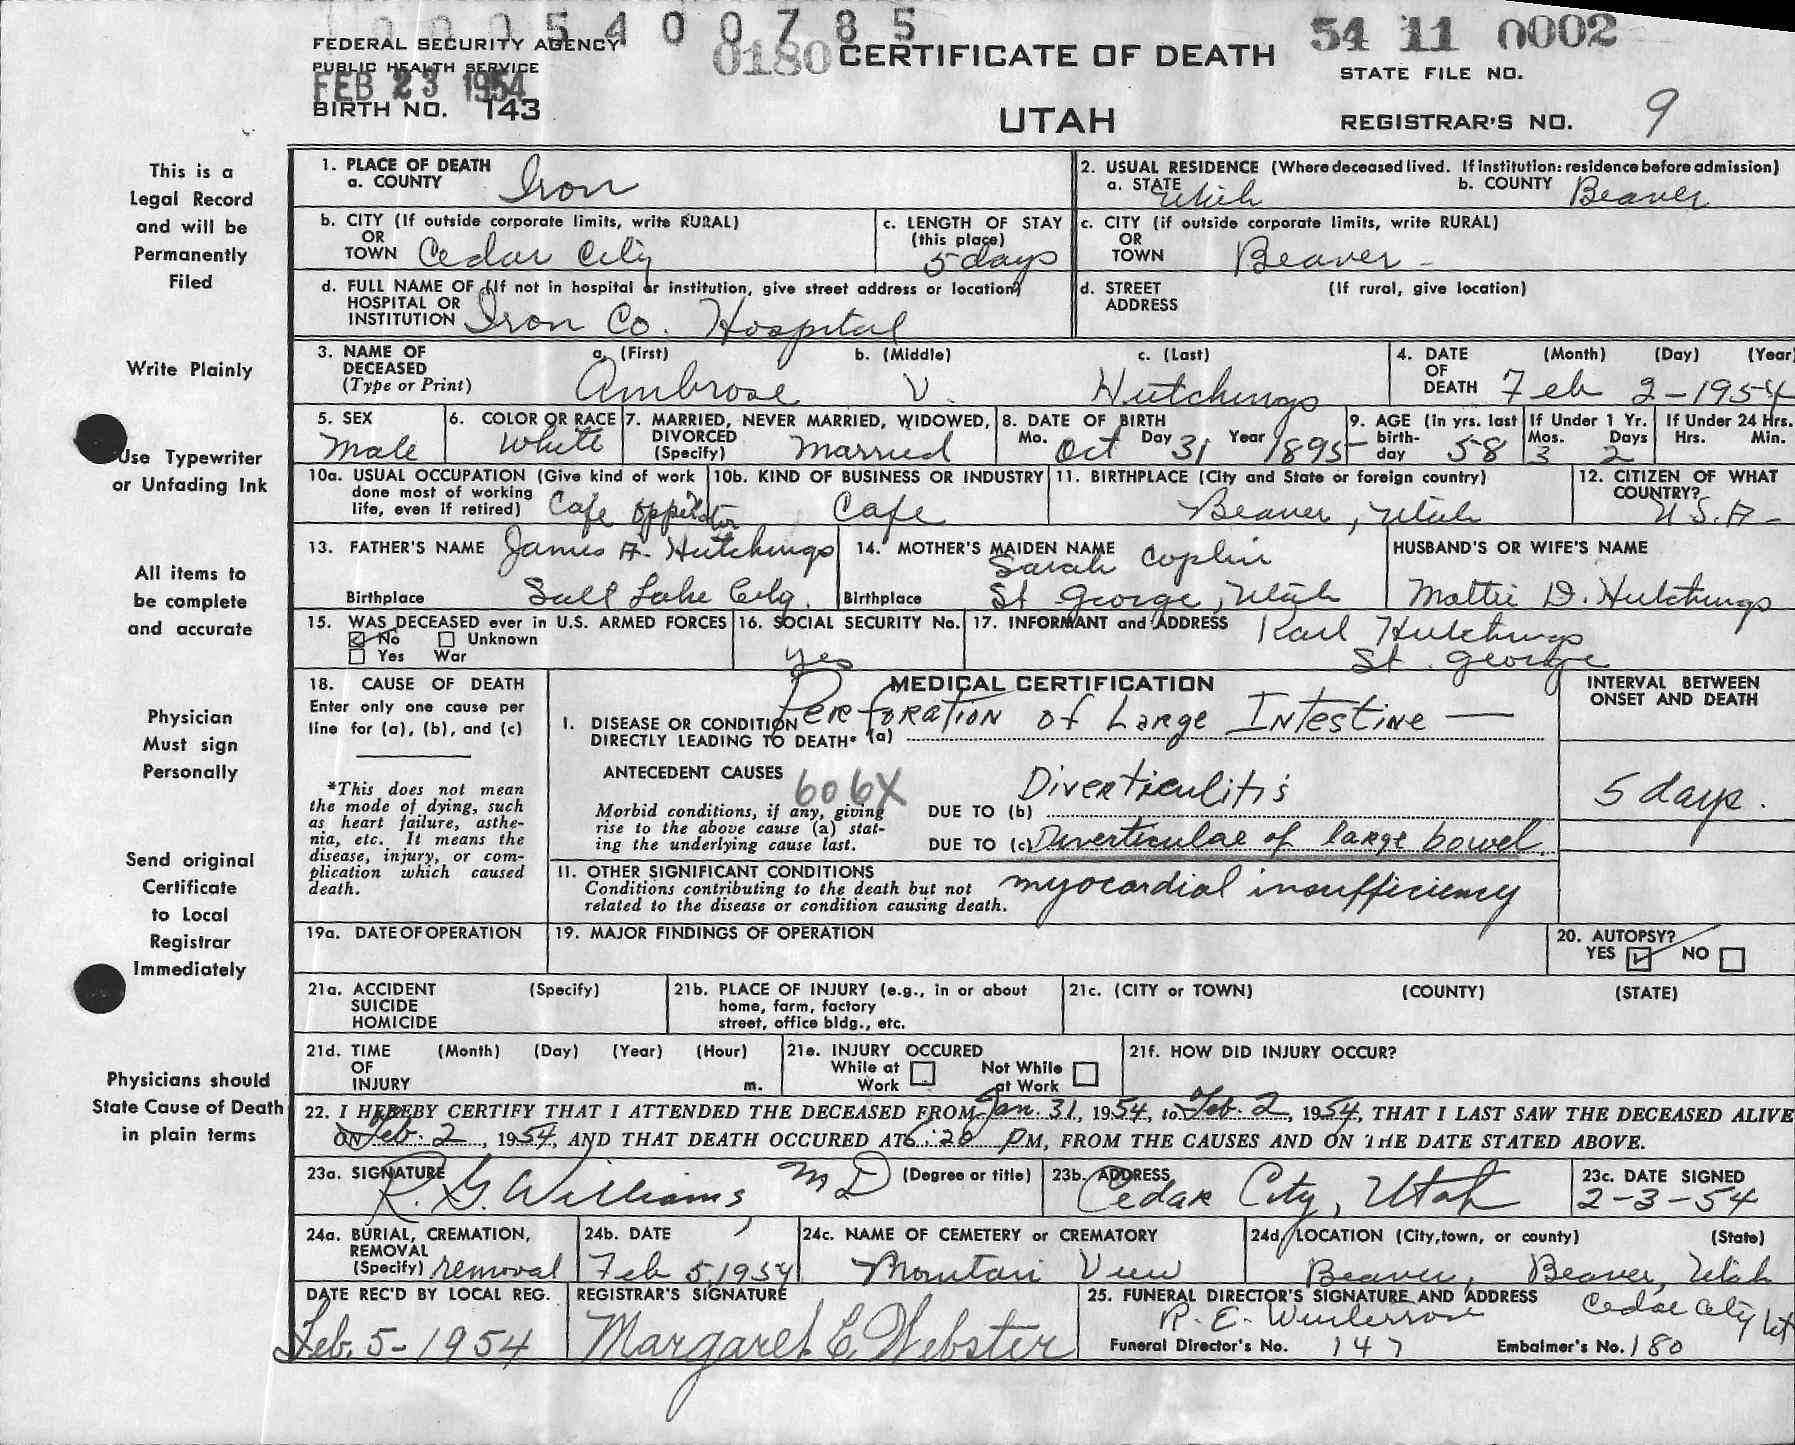 0 0 0 5 4 0 0 7 8 5
FEDERAL SECURITY AGENCY
PUBLIC HEALTH SERVICE
FEB 23 1954
BIRTH NO. 143
0180 CERTIFICATE OF DEATH
UTAH
54 11 0002
STATE FILE NO.
REGISTRAR'S NO. 9
This is a
Legal Record
and will be
Permanently
Filed
Write Plainly
Use Typewriter
or Unfading Ink
All items to
be complete
and accurate
Physician
Must sign
Personally
Send original
Certificate
to Local
Registrar
Immediately
Physicians should
State Cause of Death
in plain terms
1. PLACE OF DEATH
a. COUNTY Iron
2. USUAL RESIDENCE (Where deceased lived. If institution: residence before admission)
a. STATE Utah b. COUNTY Beaver
b. CITY (If outside corporate limits, write RURAL)
OR
TOWN Cedar City
c. LENGTH OF STAY
(this place)
5 days
c. CITY (if outside corporate limits, write RURAL)
OR
TOWN Beaver -
d. FULL NAME OF (If not in hospital or institution, give street address or location)
HOSPITAL OR
INSTITUTION Iron Co. Hospital
d. STREET (If rural, give location)
ADDRESS
3. NAME OF DECEASED (Type or Print)
a. (First) b. (Middle) c. (Last)
Ambrose V. Hutchings
4. DATE OF DEATH (Month) (Day) (Year)
Feb 2-1954
5. SEX
Male
6. COLOR OR RACE
White
7. MARRIED, NEVER MARRIED, WIDOWED,
DIVORCED
(Specify) Married
8. DATE OF BIRTH
Mo. Oct Day 31 Year 1895
9. AGE (in yrs. last
birth-
day 58
If Under 1 Yr.
Mos. Days
3 2
If Under 24 Hrs.
Hrs. Min.
10a. USUAL OCCUPATION (Give kind of work
done most of working
life, even if retired) Cafe
10b. KIND OF BUSINESS OR INDUSTRY
Cafe
11. BIRTHPLACE (City and State or foreign country)
Beaver, Utah
12. CITIZEN OF WHAT
COUNTRY?
U.S.A-
13. FATHER'S NAME James A. Hutchings
Birthplace Salt Lake City.
14. MOTHER'S MAIDEN NAME
Sarah Coplin
Birthplace St George, Utah
HUSBAND'S OR WIFE'S NAME
Mattie D. Hutchings
15. WAS DECEASED ever in U.S. ARMED FORCES
No Unknown
Yes War
16. SOCIAL SECURITY No.
yes
17. INFORMANT and ADDRESS Karl Hutchings
St. George
18. CAUSE OF DEATH
Enter only one cause per
line for (a), (b), and (c)
*This does not mean
the mode of dying, such
as heart failure, asthe-
nia, etc. It means the
disease, injury, or com-
plication which caused
death.
MEDICAL CERTIFICATION
I. DISEASE OR CONDITION
DIRECTLY LEADING TO DEATH* (a) Perforation of Large Intestine —
ANTECEDENT CAUSES 606X
Morbid conditions, if any, giving
rise to the above cause (a) stat-
ing the underlying cause last.
DUE TO (b) Diverticulitis
DUE TO (c) Diverticulae of large bowel
11. OTHER SIGNIFICANT CONDITIONS
Conditions contributing to the death but not
related to the disease or condition causing death.
myocardial insufficiency
INTERVAL BETWEEN
ONSET AND DEATH
5 days.
19a. DATE OF OPERATION
19. MAJOR FINDINGS OF OPERATION
20. AUTOPSY?
YES NO
21a. ACCIDENT (Specify)
SUICIDE
HOMICIDE
21b. PLACE OF INJURY (e.g., in or about
home, farm, factory
street, office bldg., etc.
21c. (CITY or TOWN) (COUNTY) (STATE)
21d. TIME (Month) (Day) (Year) (Hour)
OF
INJURY m.
21e. INJURY OCCURED
While at Work Not While at Work
21f. HOW DID INJURY OCCUR?
22. I HEREBY CERTIFY THAT I ATTENDED THE DECEASED FROM Jan. 31, 1954, to Feb. 2, 1954, THAT I LAST SAW THE DECEASED ALIVE
ON Feb. 2, 1954, AND THAT DEATH OCCURED AT 6:20 PM, FROM THE CAUSES AND ON THE DATE STATED ABOVE.
23a. SIGNATURE (Degree or title)
R. G. Williams, MD
23b. ADDRESS
Cedar City, Utah
23c. DATE SIGNED
2-3-54
24a. BURIAL, CREMATION,
REMOVAL
(Specify) removal
24b. DATE
Feb 5, 1954
24c. NAME OF CEMETERY or CREMATORY
Mountain View
24d. LOCATION (City, town, or county) (State)
Beaver, Beaver, Utah
DATE REC'D BY LOCAL REG.
Feb. 5-1954
REGISTRAR'S SIGNATURE
Margaret E Webster
25. FUNERAL DIRECTOR'S SIGNATURE AND ADDRESS
R. E. Cedar City Ut
Funeral Director's No. 147 Embalmer's No. 180